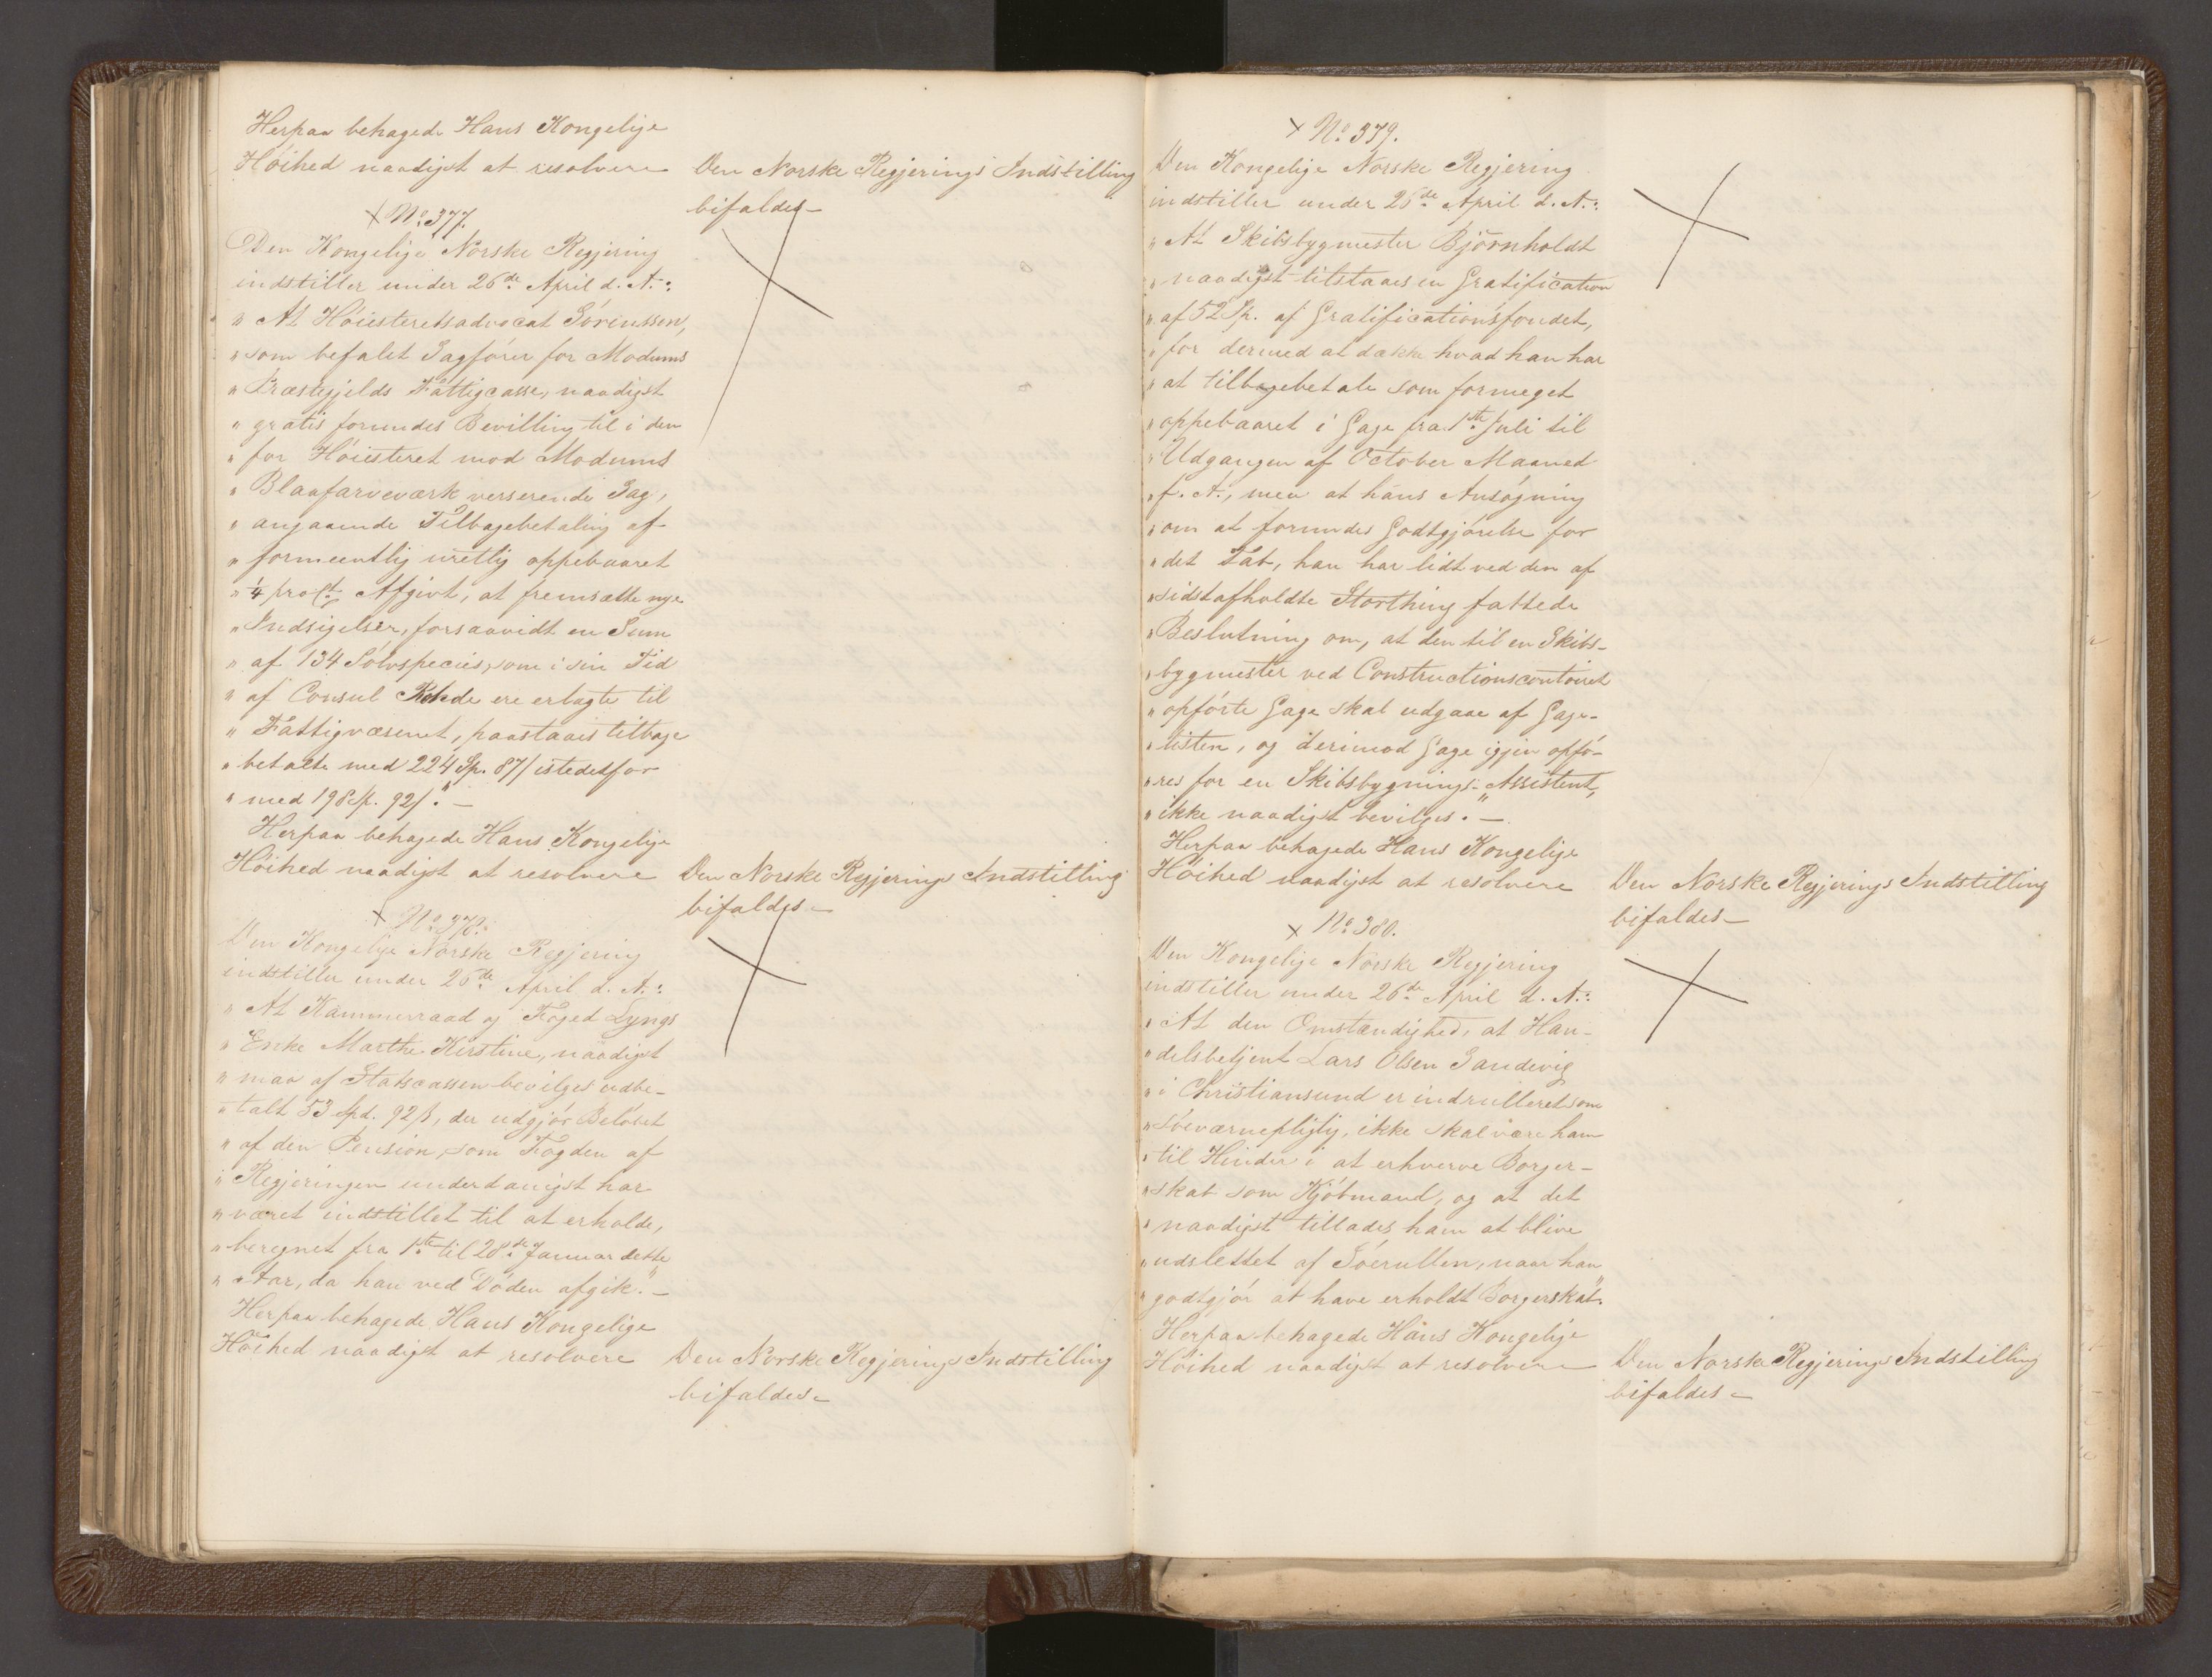 Herpaa behagede Hans Kongelige
Høihed naadigst at resolvere Den Norske Regjerings Indstilling
bifaldes_
× No. 377.
Den Kongelige Norske Regjering
indstiller under 26de April d. A.:
" At Høiesteretsadvocat Sørenssen,
" som befalet Sagfører for Modums
" Præstegjelds Fattigcasse, naadigst
" gratis forundes Bevilling til i den
" for Høiesteret mod Modums
" Blaafarveværk verserende Sag,
" angaaende Tilbagebetaling af
" formeentlig uretlig oppebaaret
" ¼ proCt. Afgivt, at fremsætte nye
" Indsigelser, forsaavidt en Sum
" af 134 Sølvspecies, som i sin Tid
" af Consul Rohde ere erlagte til
" Fattigvæsenet, paastaaes tilbage
" betalte med 224 Sp. 87ß istedetfor
" med 198 Sp. 92ß." _
Herpaa behagede Hans Kongelige
Høihed naadigst at resolvere Den Norske Regjerings Indstilling
bifaldes_
× No. 378.
Den Kongelige Norske Regjering
indstiller under 26de April d. A.:
" At Kammerraad og Foged Lyngs
" Enke Marthe Kirstine, naadigst
" maa af Statscassen bevilges udbe-
" talt 53 Spd. 92ß, der udgjør Beløbet
" af den Pension, som Fogden af
" Regjeringen underdanigst har
" været indstillet til at erholde,
" beregnet fra 1ste til 28de Januar dette
" Aar, da han ved Døden afgik." _
Herpaa behagede Hans Kongelige
Høihed naadigst at resolvere Den Norske Regjerings Indstilling
bifaldes_
× No. 379.
Den Kongelige Norske Regjering
indstiller under 26de April d. A.:
" At Skibsbygmester Bjørnholdt
" naadigst tilstaaes en Gratification
" af 52 Sp. af Gratificationsfondet,
" for dermed at dække hvad han har
" at tilbagebetale som formeget
" oppebaaret i Gage fra 1ste Juli til
" Udgangen af October Maaned
" f. A., men at hans Ansøgning
" om at forundes Godtgjørelse for
" det Tab, han har lidt ved den af
" sidstafholdte Storthing fattede
" Beslutning om, at den til en Skibs-
" bygmester ved Constructionscontoiret
" opførte Gage skal udgaae af Gage-
" listen, og derimod Gage igjen opfø-
" res for en Skibsbygnings-Assistent,
" ikke naadigst bevilges." _
Herpaa behagede Hans Kongelige
Høihed naadigst at resolvere Den Norske Regjerings Indstilling
bifaldes_
× No. 380.
Den Kongelige Norske Regjering
indstiller under 26de April d. A.:
" At den Omstændighed, at Han-
" delsbetjent Lars Olsen Sandevig
" i Christiansund er indrulleret som
" søeværnepligtig, ikke skal være ham
" til Hinder i at erhverve Borger-
" skab som Kjøbmand, og at det
" naadigst tillades ham at blive
" udslettet af Søerullen, naar han
" godtgjør at have erholdt Borgerskab."
Herpaa behagede Hans Kongelige
Høihed naadigst at resolvere Den Norske Regjerings Indstilling
bifaldes_